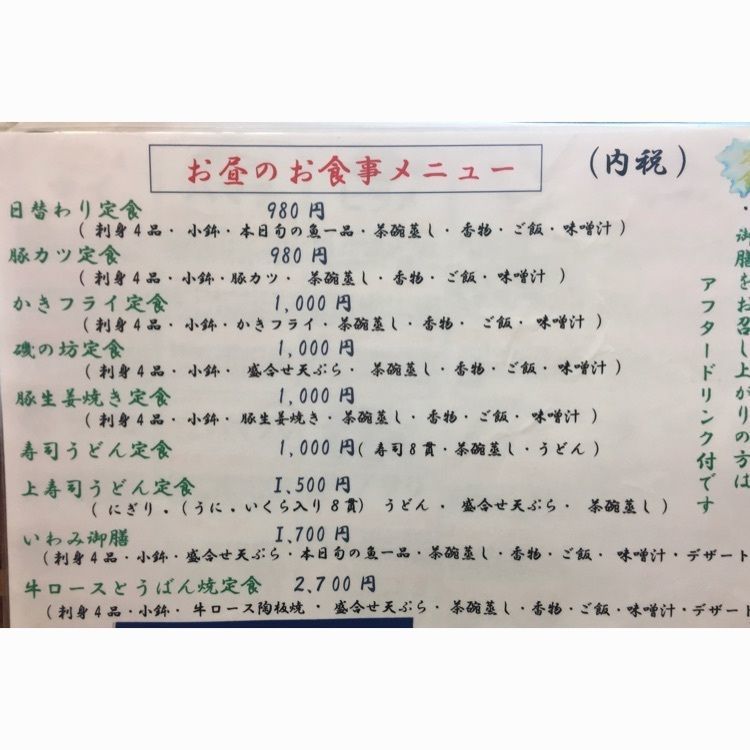 お昼のお食事メニュー
(内税)
日替わり定食 980円
(刺身4品・小鉢・本日旬の魚一品・茶碗蒸し・香物・ご飯・味噌汁)
豚カツ定食 980円
(刺身4品・小鉢・豚カツ・茶碗蒸し・香物・ご飯・味噌汁)
かきフライ定食 1,000円
(刺身4品・小鉢・かきフライ・茶碗蒸し・香物・ご飯・味噌汁)
磯の坊定食 1,000円
(刺身4品・小鉢・盛合せ天ぷら・茶碗蒸し・香物・ご飯・味噌汁)
豚生姜焼き定食 1,000円
(刺身4品・小鉢・豚生姜焼き・茶碗蒸し・香物・ご飯・味噌汁)
寿司うどん定食 1,000円(寿司8貫・茶碗蒸し・うどん)
上寿司うどん定食 1,500円
(にぎり・(うに・いくら入り8貫) うどん・盛合せ天ぷら・茶碗蒸し)
いわみ御膳 1,700円
(刺身4品・小鉢・盛合せ天ぷら・本日旬の魚一品・茶碗蒸し・香物・ご飯・味噌汁・デザート
牛ロースとうばん焼定食 2,700円
(刺身4品・小鉢・牛ロース陶板焼・盛合せ天ぷら・茶碗蒸し・香物・ご飯・味噌汁・デザー
・御膳をお召し上がりの方は
アフタードリンク付です